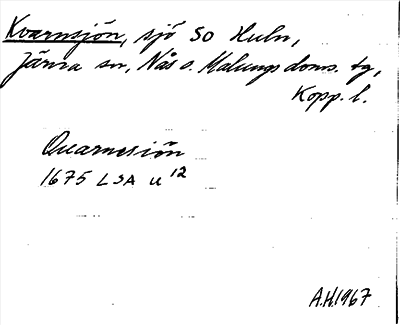 Kvarnsjön, sjö SO Huln,
Järna sn, Nås o. Malungs doms. tg,
Kopp. l.
Quarnesiön
1675 LSA U 12
A.H. 1967